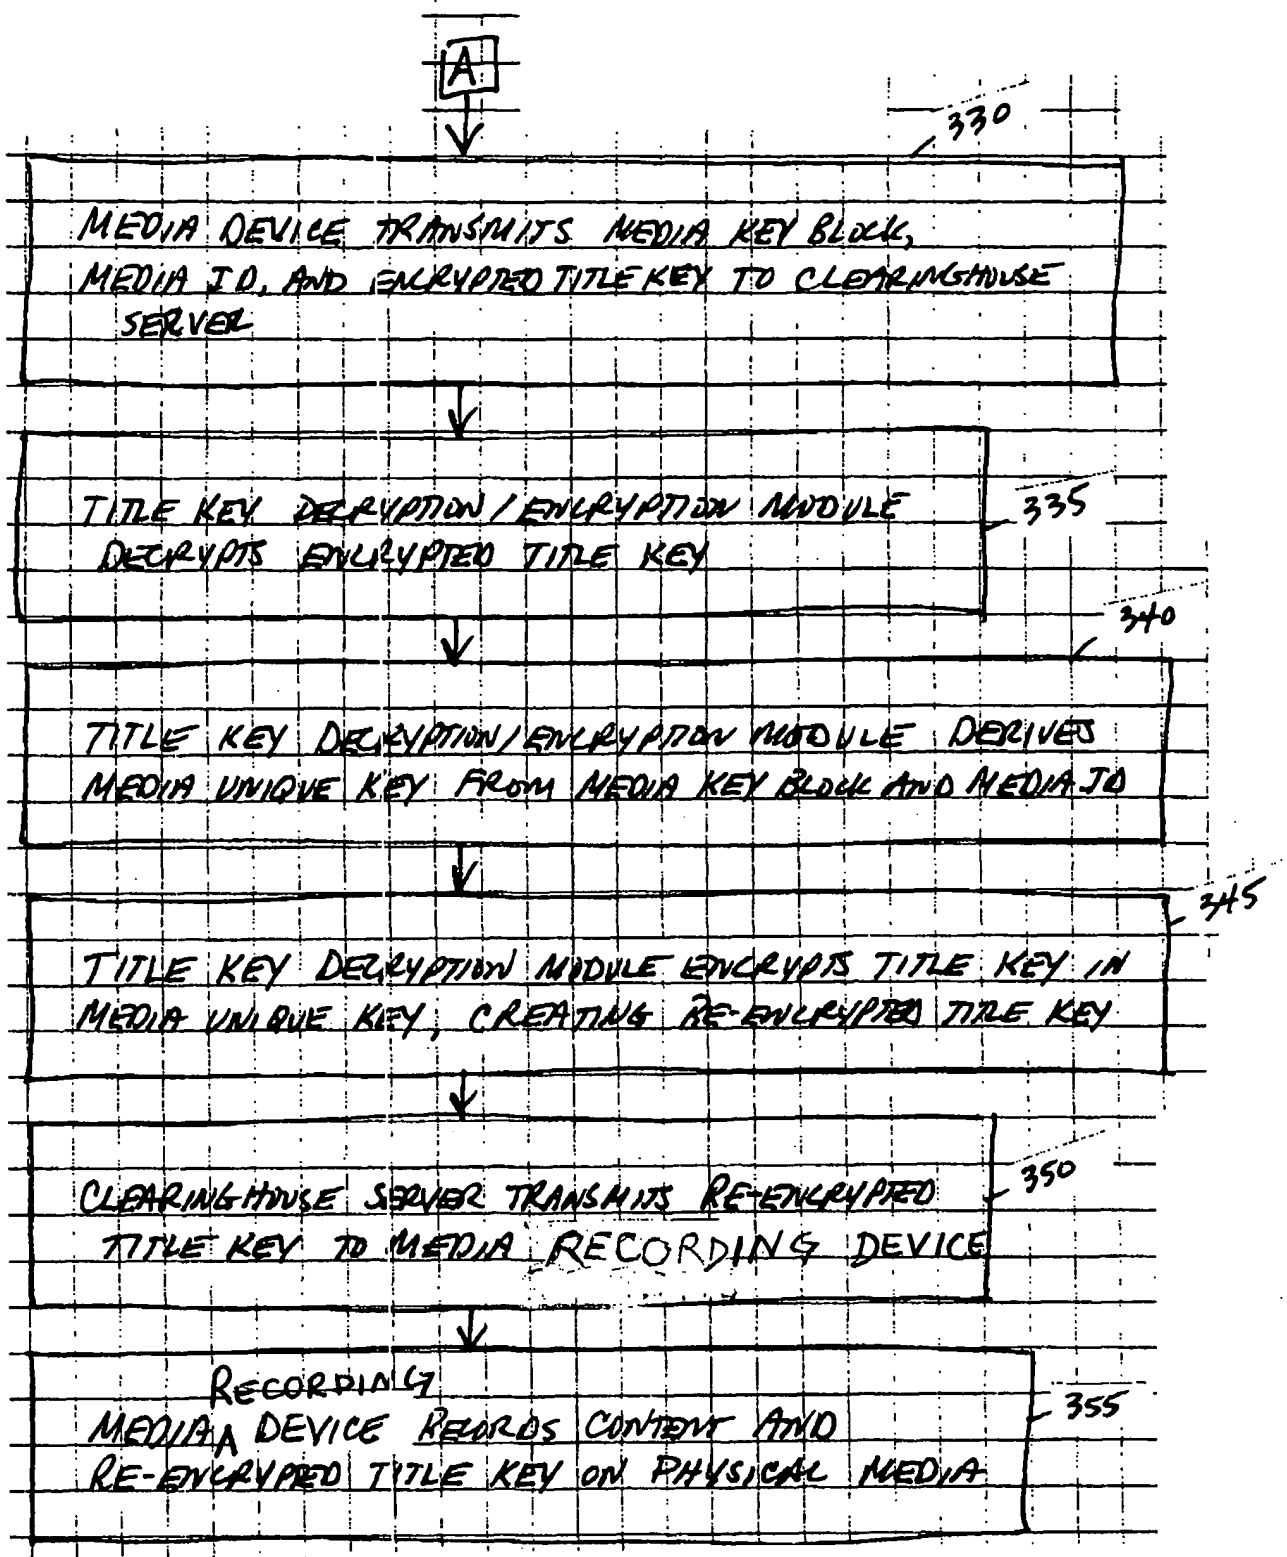 A
330
MEDIA DEVICE TRANSMITS MEDIA KEY BLOCK,
MEDIA ID, AND ENCRYPTED TITLE KEY TO CLEARINGHOUSE
SERVER
335
TITLE KEY DECRYPTION/ENCRYPTION MODULE
DECRYPTS ENCRYPTED TITLE KEY
340
TITLE KEY DECRYPTION/ENCRYPTION MODULE DERIVES
MEDIA UNIQUE KEY FROM MEDIA KEY BLOCK AND MEDIA ID
345
TITLE KEY DECRYPTION MODULE ENCRYPTS TITLE KEY IN
MEDIA UNIQUE KEY, CREATING RE-ENCRYPTED TITLE KEY
350
CLEARINGHOUSE SERVER TRANSMITS RE-ENCRYPTED
TITLE KEY TO MEDIA RECORDING DEVICE
355
RECORDING
MEDIA DEVICE RECORDS CONTENT AND
RE-ENCRYPTED TITLE KEY ON PHYSICAL MEDIA